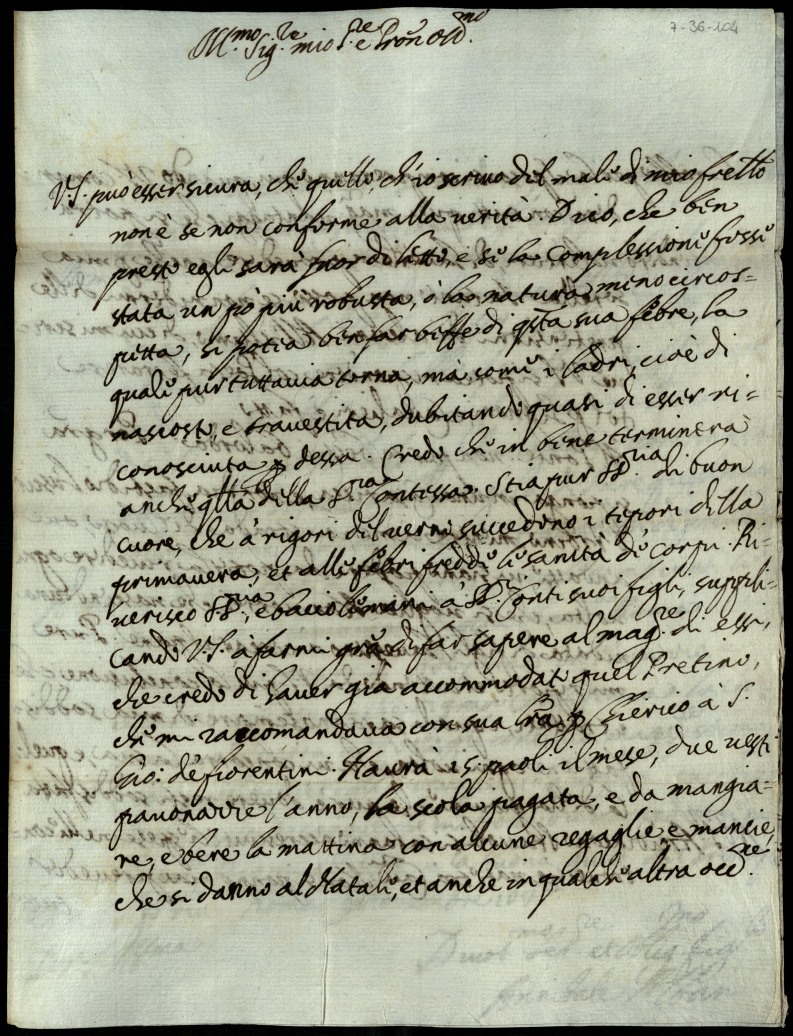 7-36-104
Ill.mo Sig.re mio S.re e Pron Oss.mo
V.S. può esser sicura, che quello, ch'io scriuo del male di mio frello
non è se non conforme alla uerità. Dico, che ben
presto egli sarà fuor di letto, e se la complessione fosse
stata un pò più robusta, ò la natura meno circos=
petta, si potea ben far beffe di qsta sua febre, la
quale pur tuttauia torna, mà come i ladri, cioè di
nascosto, e trauestita, dubitando quasi di esser ri=
conosciuta p dessa. Credo che in bene terminerà
anche qlla della S.ra Contessa. Stia pur VS.Ill.ma di buon
cuore, che à rigori del uerno succedono i tepori della
primauera, et alle febri fredde le sanità de corpi. Ri=
uerisco VS.Ill.ma, e bacio le mani a SS.ri Conti suoi figli, suppli=
cando V.S. a farmi gra di far sapere al mag.re di essi,
che credo di hauer già accommodato quel Pretino,
che mi raccomandaua con sua lra p Chierico à S.
Gio: de fiorentini. Haurà 15 paoli il mese, due uesti
pauonazze l'anno, la scola pagata, e da mangia=
re, e bere la mattina con alcune regaglie e mancie,
che si danno al Natale, et anche in qualche altra occ.ne